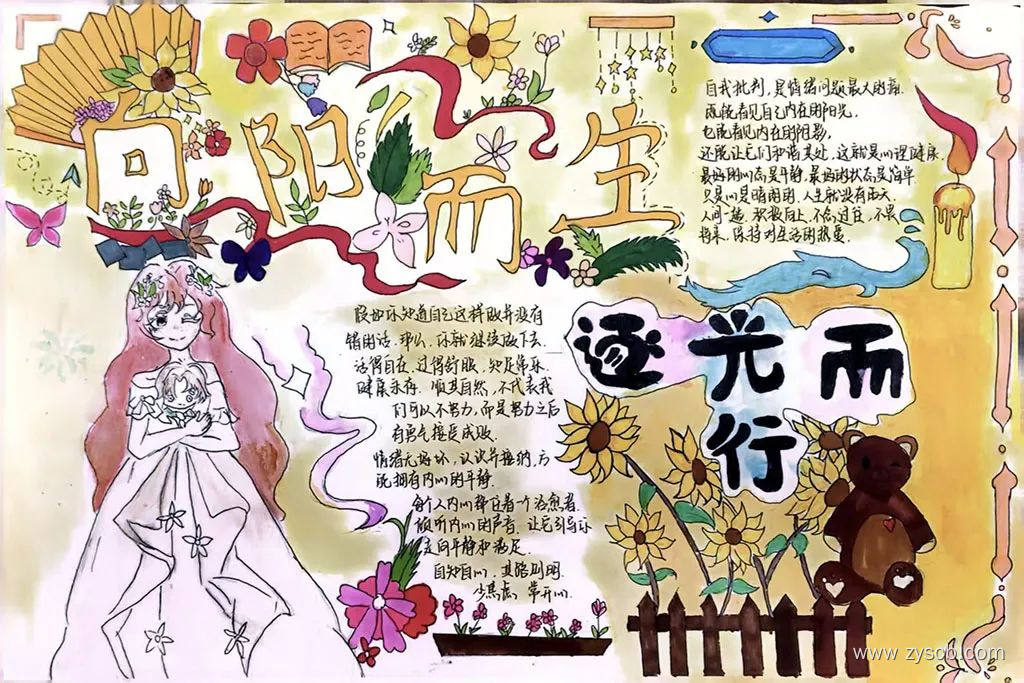 向阳而生
自我批判,是情绪问题最大的毒.
既能看见自己内在的阳光,
也能看见内在的阴影,
还能让它们和谐共处,这就是心理健康.
最好的心态是平静,最好的状态是简单
只要心是晴朗的,人生就没有雨天.
人间一趟,积极向上,不念过往,不畏
将来,保持对生活的热爱.
假如你知道自己这样做并没有
错的话,那么,你就继续做下去.
活得自在,过得舒服,知足常乐.
健康永存.顺其自然,不代表我
们可以不努力,而是努力之后
有勇气接受成败.
情绪无好坏,认识并接纳,方
能拥有内心的平静.
每个人内心都住着一个治愈者.
倾听内心的声音,让它引导你
走向平静和满足.
自知自心,其路则明.
少焦虑,常开心.
逐光而
行
www.zyscb.com